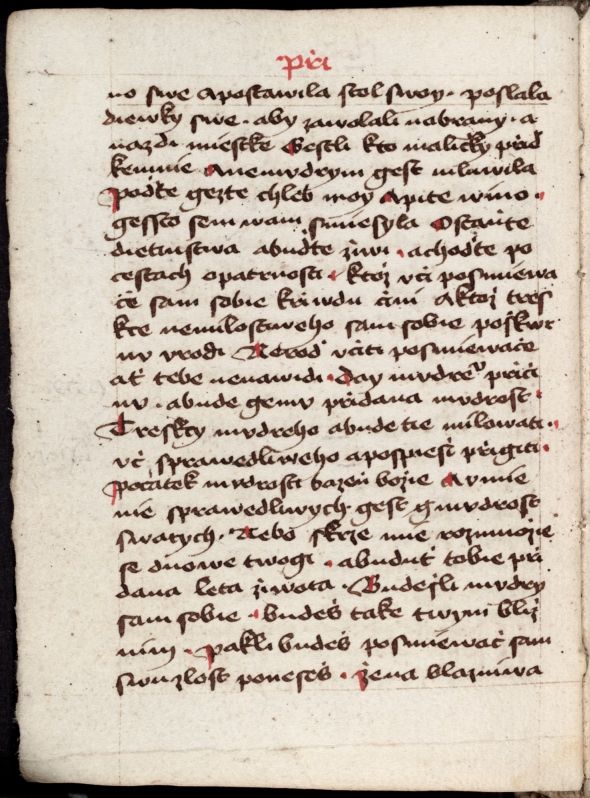 přři
no swe Apostawila stol swoy · poslala
diewky swe · aby zawolali nahrany · a
nazdi miestke Gestli kto maličky přiď
kemnie Anemudrym gest mluwila
Poďte gezte chleb moy Apite wino ·
gessto sem wam smiesyla Ostaňte
dietinstwa abuďte žiwi · achoďte po
cestach opatrnosti · ktož vči posmiewa
če sam sobie křiwdu čini Aktož tres
kce nemilostiweho sam sobie poškwr
nu vrodi Nerod včiti posmiewače
ať tebe nenawidi · day mudre͛ přiči
nu · abude gemu přidana mudrost ·
Treskcy mudreho abude tie milowati ·
vč sprawedliweho apospieši přigiti ·
počatek mudrosti bazeň božie Avmie
nie sprawedliwych gest gmudrost
swatych · Nebo skrze mie rozmnožie
se dnowe twogi · abuduť tobie při
dana leta žiwota · Budešli mudry
sam sobie · budeš take twym bliž
nim · pakli budeš posmiewač sam
swu zlost poneseš · žena blazniwa